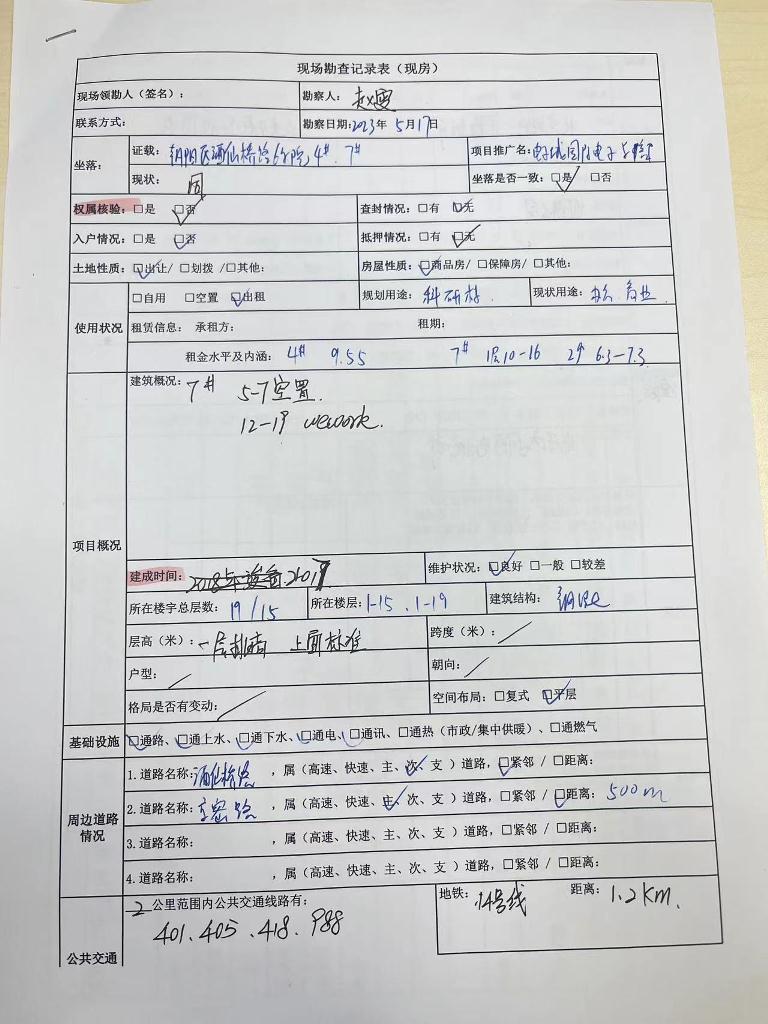 现场勘查记录表（现房）
现场领勘人（签名）： 勘察人：赵雯
联系方式： 勘察日期:2023年 5月17日
坐落： 证载：朝阳区酒仙桥路6号院 4# 7# 项目推广名:电子城国际电子
现状：同 坐落是否一致：☑是 □否
权属核验：□是 ☑否 查封情况：□有 ☑无
入户情况：□是 ☑否 抵押情况：□有 ☑无
土地性质：☑出让/ □划拨 /□其他： 房屋性质：☑商品房/ □保障房/ □其他：
使用状况 □自用 □空置 ☑出租 规划用途：科研 现状用途：办公 商业
租赁信息： 承租方： 租期：
租金水平及内涵： 4# 9.55 7# 1层10-16 6.3-7.3
项目概况 建筑概况：7# 5-7空置.
12-19 wework.
建成时间： 维护状况：☑良好 □一般 □较差
所在楼宇总层数：19/15 所在楼层：1-15 . 1-19 建筑结构：钢混
层高（米）：一层 上面标准 跨度（米）：/
户型：/ 朝向：/
格局是否有变动：/ 空间布局：□复式 ☑平层
基础设施 ☑通路、☑通上水、☑通下水、☑通电、☑通讯、□通热（市政/集中供暖）、□通燃气
周边道路情况 1.道路名称:酒仙桥路 ，属（高速、快速、主、次、支 ）道路，☑紧邻 / □距离：
2.道路名称: ，属（高速、快速、主、次、支 ）道路，□紧邻 / ☑距离： 500m
3.道路名称： ，属（高速、快速、主、次、支 ）道路，□紧邻 / □距离：
4.道路名称： ，属（高速、快速、主、次、支 ）道路，□紧邻 / □距离：
公共交通 2 公里范围内公共交通线路有： 地铁：14号线 距离：1.2KM.
401.405.418.988